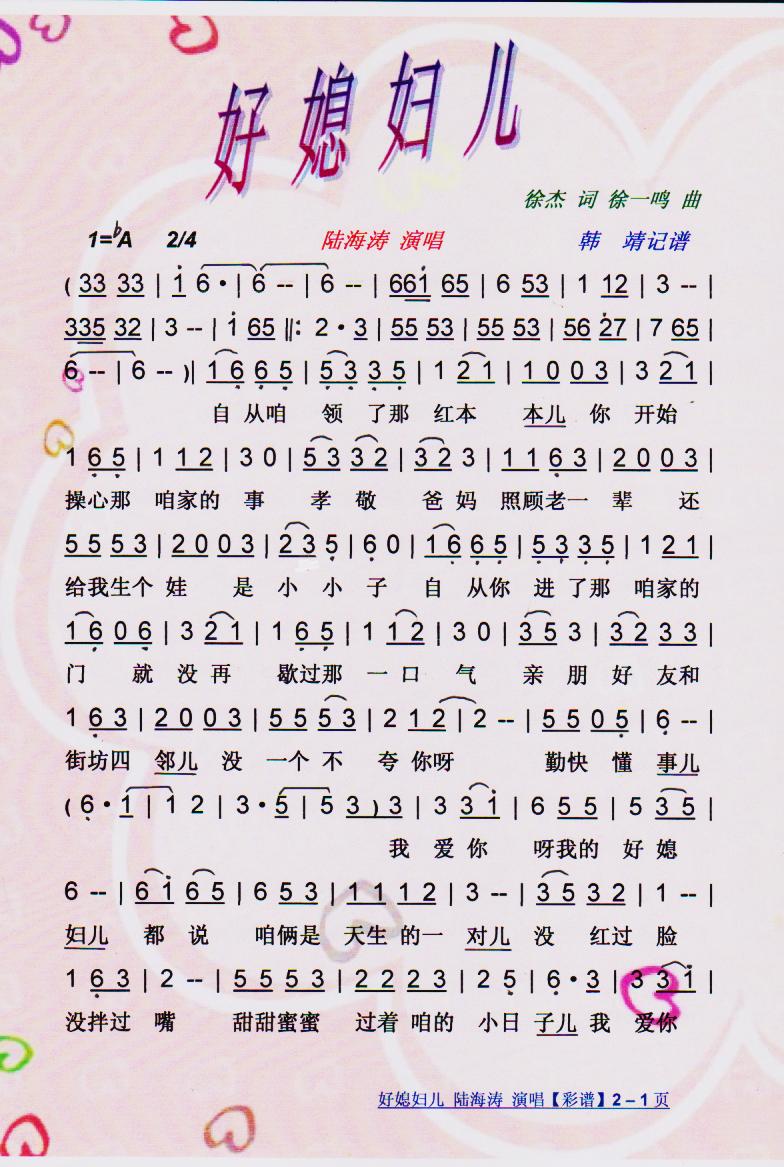 好媳妇儿
徐杰 词 徐一鸣 曲
1=♭A 2/4 陆海涛 演唱 韩 靖记谱
( 33 33 | 1 6 · | 6 -- | 6 -- | 661 65 | 6 53 | 1 12 | 3 -- |
335 32 | 3 -- | 1 65 ‖: 2 · 3 | 55 53 | 55 53 | 56 27 | 7 65 |
6 -- | 6 -- )| 1 6 6 5 | 5 3 3 5 | 1 2 1 | 1 0 0 3 | 3 2 1 |
自 从咱 领 了那 红本 本儿 你 开始
1 6 5 | 1 1 2 | 3 0 | 5 3 3 2 | 3 2 3 | 1 1 6 3 | 2 0 0 3 |
操心那 咱家的 事 孝 敬 爸 妈 照顾老一 辈 还
5 5 5 3 | 2 0 0 3 | 2 3 5 | 6 0 | 1 6 6 5 | 5 3 3 5 | 1 2 1 |
给我生个 娃 是 小 小 子 自 从你 进 了那 咱家的
1 6 0 6 | 3 2 1 | 1 6 5 | 1 1 2 | 3 0 | 3 5 3 | 3 2 3 3 |
门 就 没 再 歇过那 一 口 气 亲 朋 好 友和
1 6 3 | 2 0 0 3 | 5 5 5 3 | 2 1 2 | 2 -- | 5 5 0 5 | 6 -- |
街坊四 邻儿 没 一个 不 夸 你呀 勤快 懂 事儿
( 6 · 1 | 1 2 | 3 · 5 | 5 3 ) 3 | 3 3 1 | 6 5 5 | 5 3 5 |
我 爱 你 呀我的 好 媳
6 -- | 6 1 6 5 | 6 5 3 | 1 1 1 2 | 3 -- | 3 5 3 2 | 1 -- |
妇儿 都 说 咱俩是 天生 的一 对儿 没 红过 脸
1 6 3 | 2 -- | 5 5 5 3 | 2 2 2 3 | 2 5 | 6 · 3 | 3 3 1 |
没拌过 嘴 甜甜蜜蜜 过着 咱的 小日 子儿 我 爱你
好媳妇儿 陆海涛 演唱【彩谱】2 – 1 页